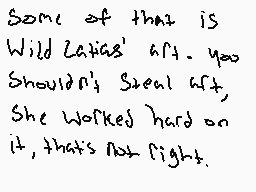 Some of that is
Wild Latias' art. you
Shouldn't Steal art,
She worked hard on
it, that's not right.